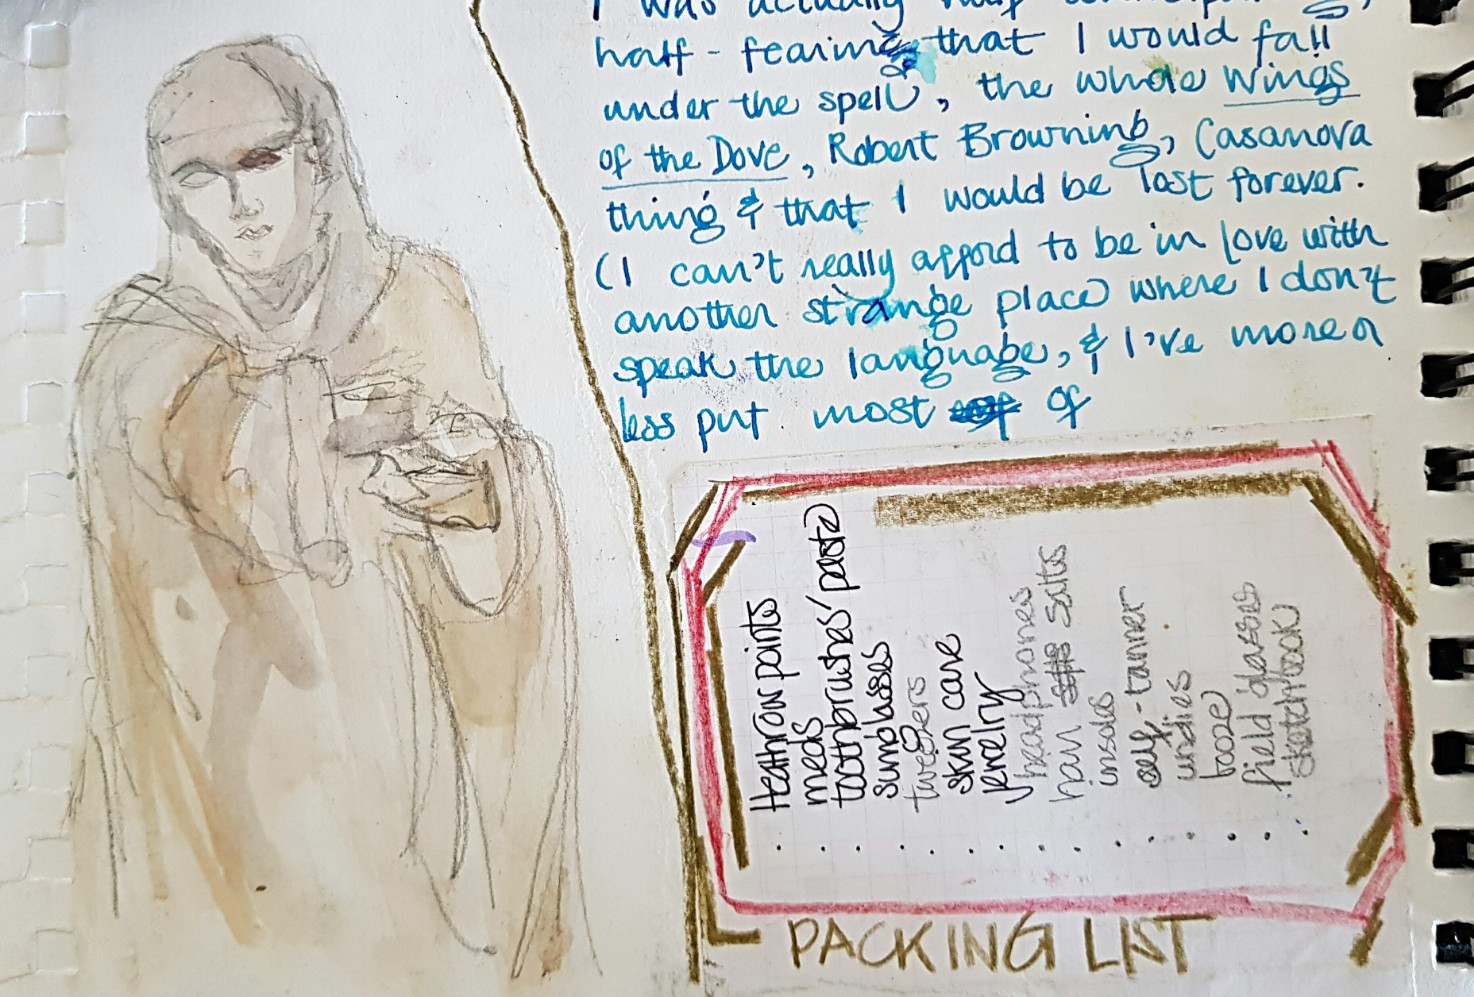 I was actually half
half-fearing that I would fall
under the spell, the whole Wings
of the Dove, Robert Browning, Casanova
thing & that I would be lost forever.
(I can't really afford to be in love with
another strange place where I don't
speak the language, & I've more or
less put most of
PACKING LIST
. Heathrow points
. meds
. toothbrushes/paste
. sunglasses
. tweezers
. skin care
. jewelry
✓ headphones
. hair salts
. insoles
. self-tanner
. undies
. booze
. field glasses
. sketchbook